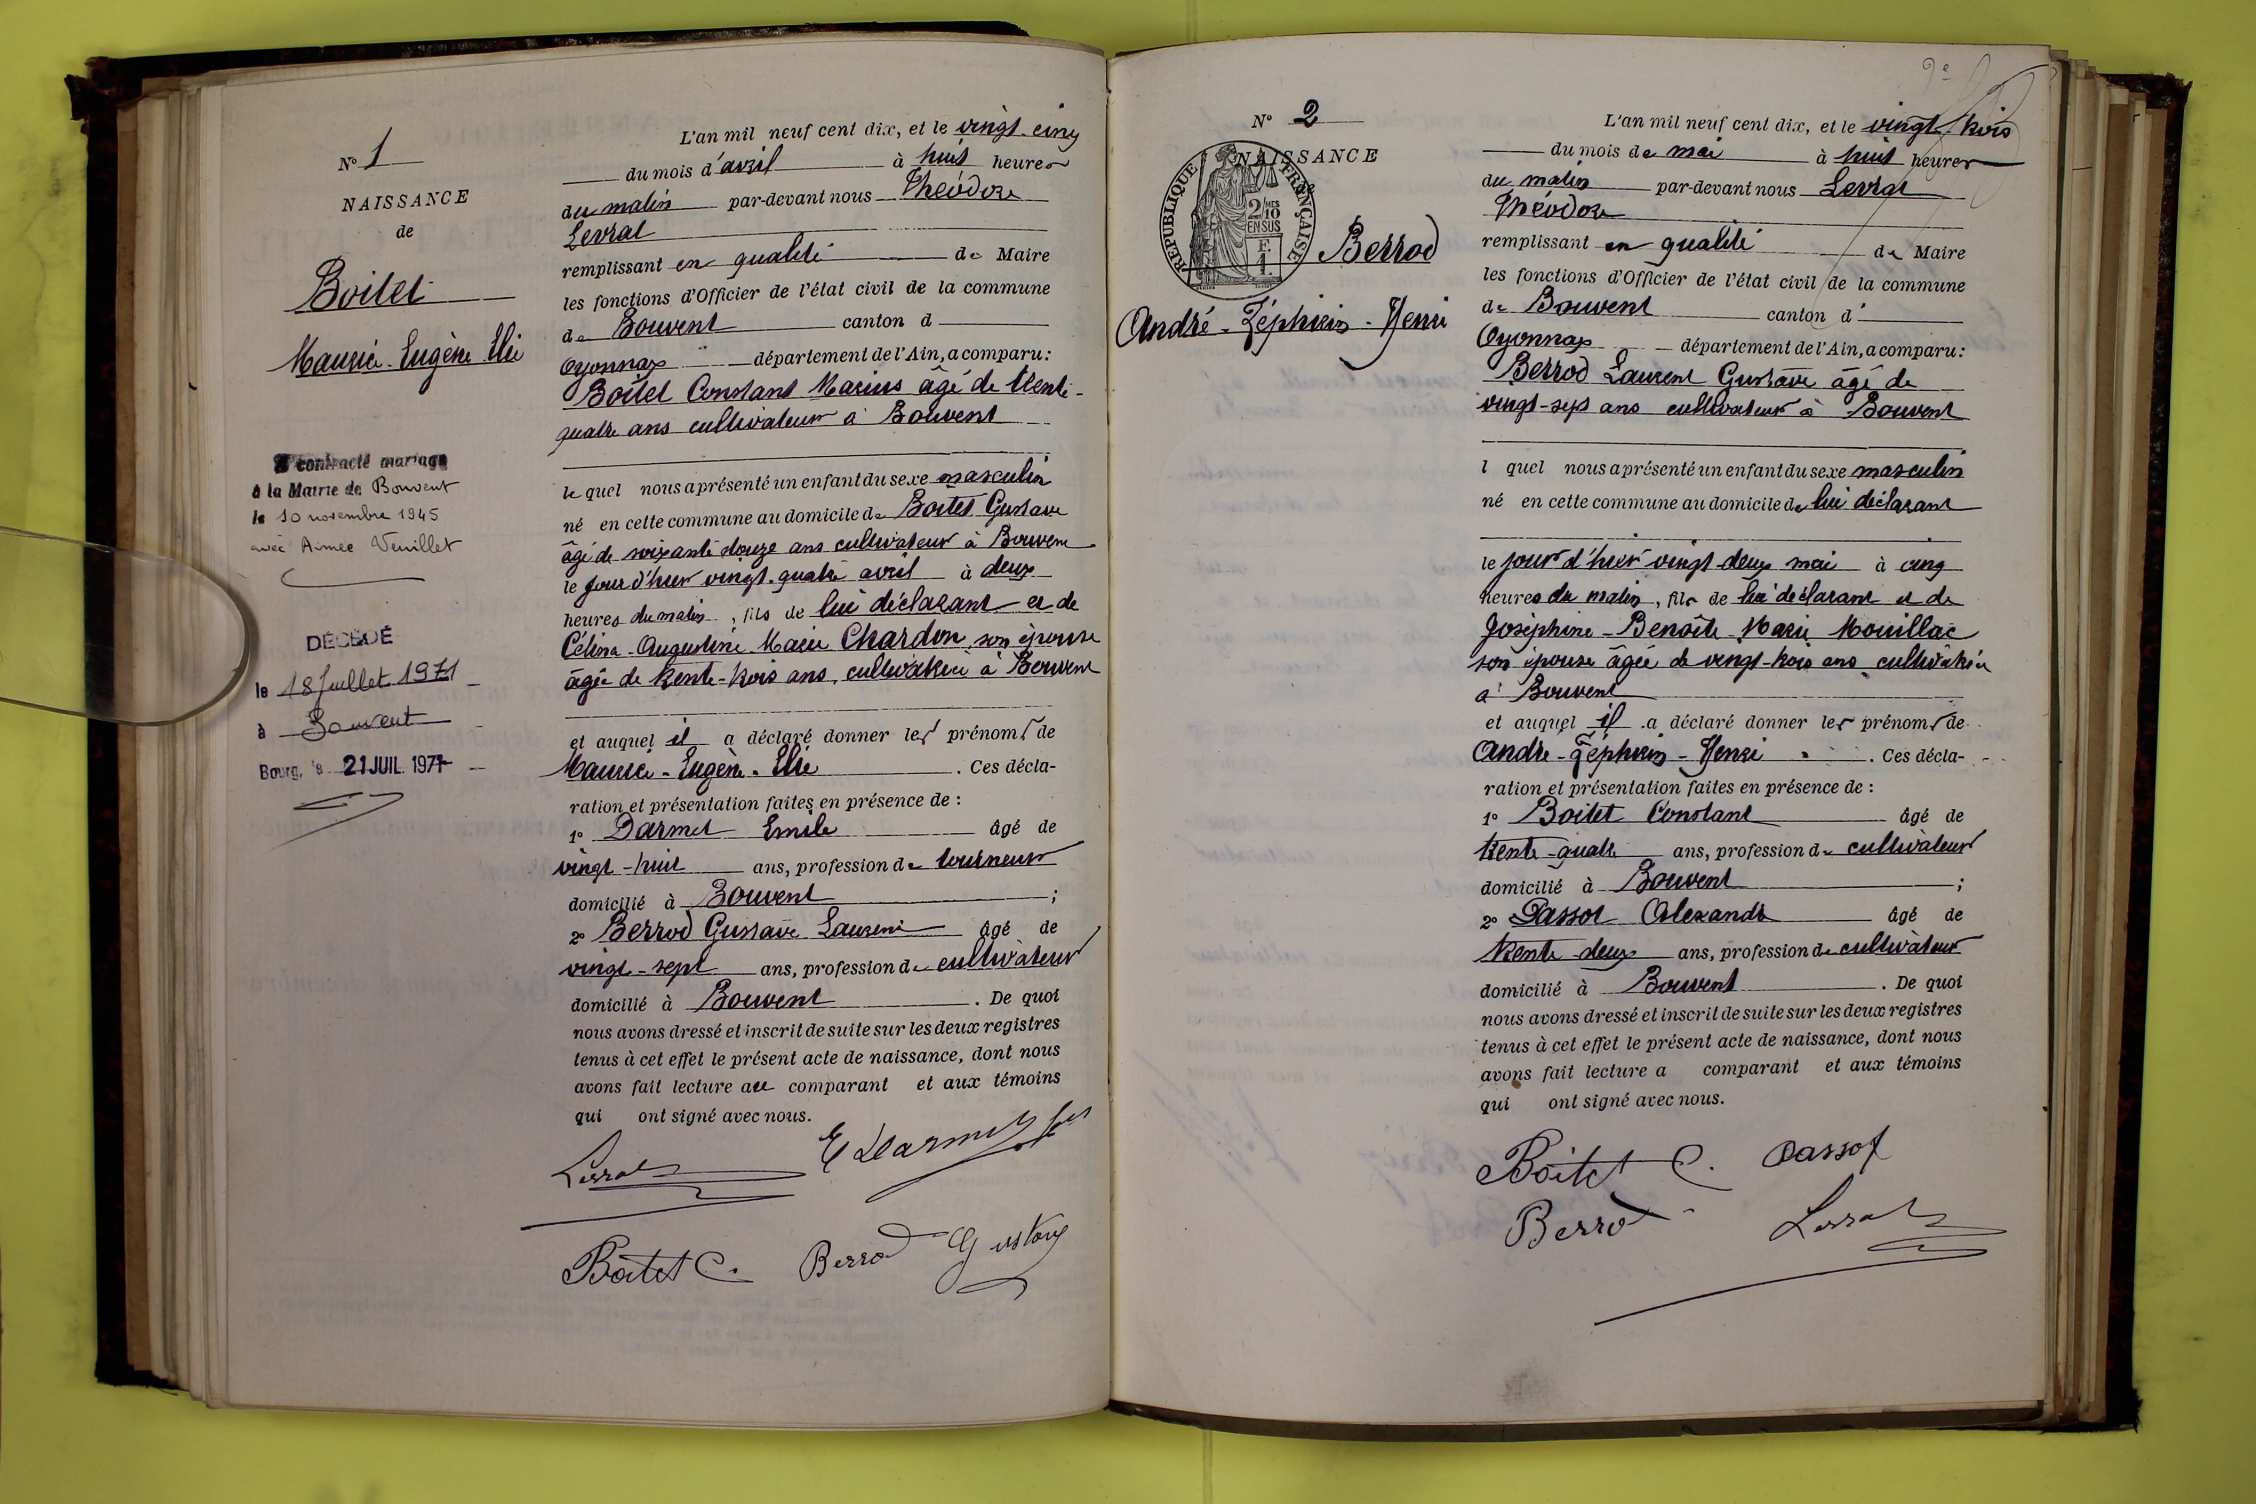 N° 1
NAISSANCE
de
Boitet
Maurice-Eugène Elie
contracté mariage
à la Mairie de Bouvent
le 10 novembre 1945
avec Aimée Vuillet
DÉCÉDÉ
le 18 Juillet 1971
à Bouvent
Bourg, le 21 JUIL. 1971
L'an mil neuf cent dix, et le vingt-cinq
du mois d'avril à huit heures
du matin par-devant nous Théodore
Levrat
remplissant en qualité de Maire
les fonctions d'Officier de l'état civil de la commune
de Bouvent canton d
Oyonnax département de l'Ain, a comparu:
Boitet Constant Marius âgé de trente-
quatre ans cultivateur à Bouvent
le quel nous a présenté un enfant du sexe masculin
né en cette commune au domicile de Boitet Gustave
âgé de soixante douze ans cultivateur à Bouvent
le jour d'hier vingt-quatre avril à deux
heures du matin, fils de lui déclarant et de
Célina-Augustine Marie Chardon son épouse
âgée de trente-trois ans, cultivatrice à Bouvent
et auquel il a déclaré donner les prénoms de
Maurice-Eugène-Elie. Ces décla-
ration et présentation faites en présence de :
1° Darmet Emile âgé de
vingt-huit ans, profession de tourneur
domicilié à Bouvent ;
2° Berrod Gustave Laurent âgé de
vingt-sept ans, profession de cultivateur
domicilié à Bouvent. De quoi
nous avons dressé et inscrit de suite sur les deux registres
tenus à cet effet le présent acte de naissance, dont nous
avons fait lecture au comparant et aux témoins
qui ont signé avec nous.
Levrat E Darmet
Boitet C. Berrod Gustave
2e
N° 2
NAISSANCE
RÉPUBLIQUE FRANÇAISE
2/10 MES
EN SUS
F.
1.
Berrod
André-Zéphirin-Henri
L'an mil neuf cent dix, et le vingt trois
du mois de mai à huit heures
du matin par-devant nous Levrat
Théodore
remplissant en qualité de Maire
les fonctions d'Officier de l'état civil de la commune
de Bouvent canton d'
Oyonnax département de l'Ain, a comparu:
Berrod Laurent Gustave âgé de
vingt-sept ans cultivateur à Bouvent
l quel nous a présenté un enfant du sexe masculin
né en cette commune au domicile de lui déclarant
le jour d'hier vingt-deux mai à cinq
heures du matin, fils de lui déclarant et de
Joséphine-Benoîte-Marie Mouillac
son épouse âgée de vingt-trois ans cultivatrice
à Bouvent
et auquel il a déclaré donner les prénoms de
André-Zéphirin-Henri. Ces décla-
ration et présentation faites en présence de :
1° Boitet Constant âgé de
trente-quatre ans, profession de cultivateur
domicilié à Bouvent ;
2° Passot Alexandre âgé de
trente-deux ans, profession de cultivateur
domicilié à Bouvent. De quoi
nous avons dressé et inscrit de suite sur les deux registres
tenus à cet effet le présent acte de naissance, dont nous
avons fait lecture a comparant et aux témoins
qui ont signé avec nous.
Boitet C. Passot
Berrod Levrat